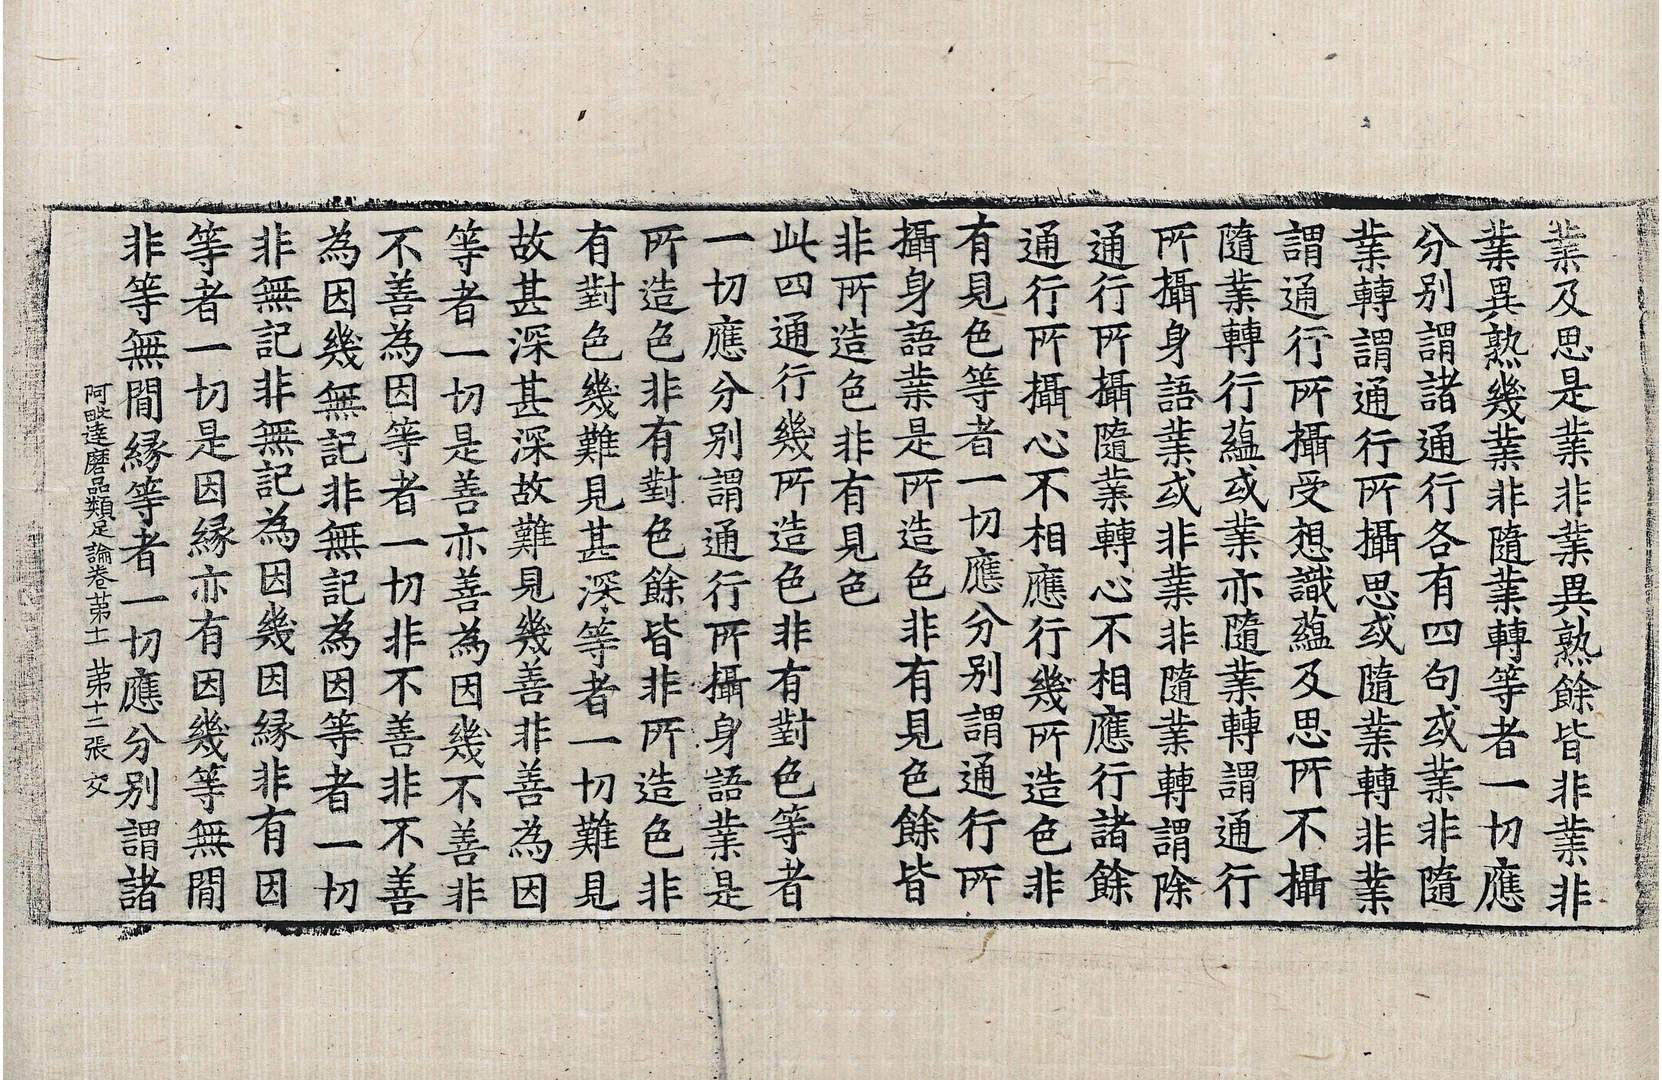 業及思是業非業異熟餘皆非業非
業異熟幾業非隨業轉等者一切應
分別謂諸通行各有四句或業非隨
業轉謂通行所攝思或隨業轉非業
謂通行所攝受想識蘊及思所不攝
隨業轉行蘊或業亦隨業轉謂通行
所攝身語業或非業非隨業轉謂除
通行所攝隨業轉心不相應行諸餘
通行所攝心不相應行幾所造色非
有見色等者一切應分別謂通行所
攝身語業是所造色非有見色餘皆
非所造色非有見色
此四通行幾所造色非有對色等者
一切應分別謂通行所攝身語業是
所造色非有對色餘皆非所造色非
有對色幾難見甚深等者一切難見
故甚深甚深故難見幾善非善為因
等者一切是善亦善為因幾不善非
不善為因等者一切非不善非不善
為因幾無記非無記為因等者一切
非無記非無記為因幾因緣非有因
等者一切是因緣亦有因幾等無間
非等無間緣等者一切應分別謂諸
阿毗達磨品類足論卷苐十一 苐十二張 交